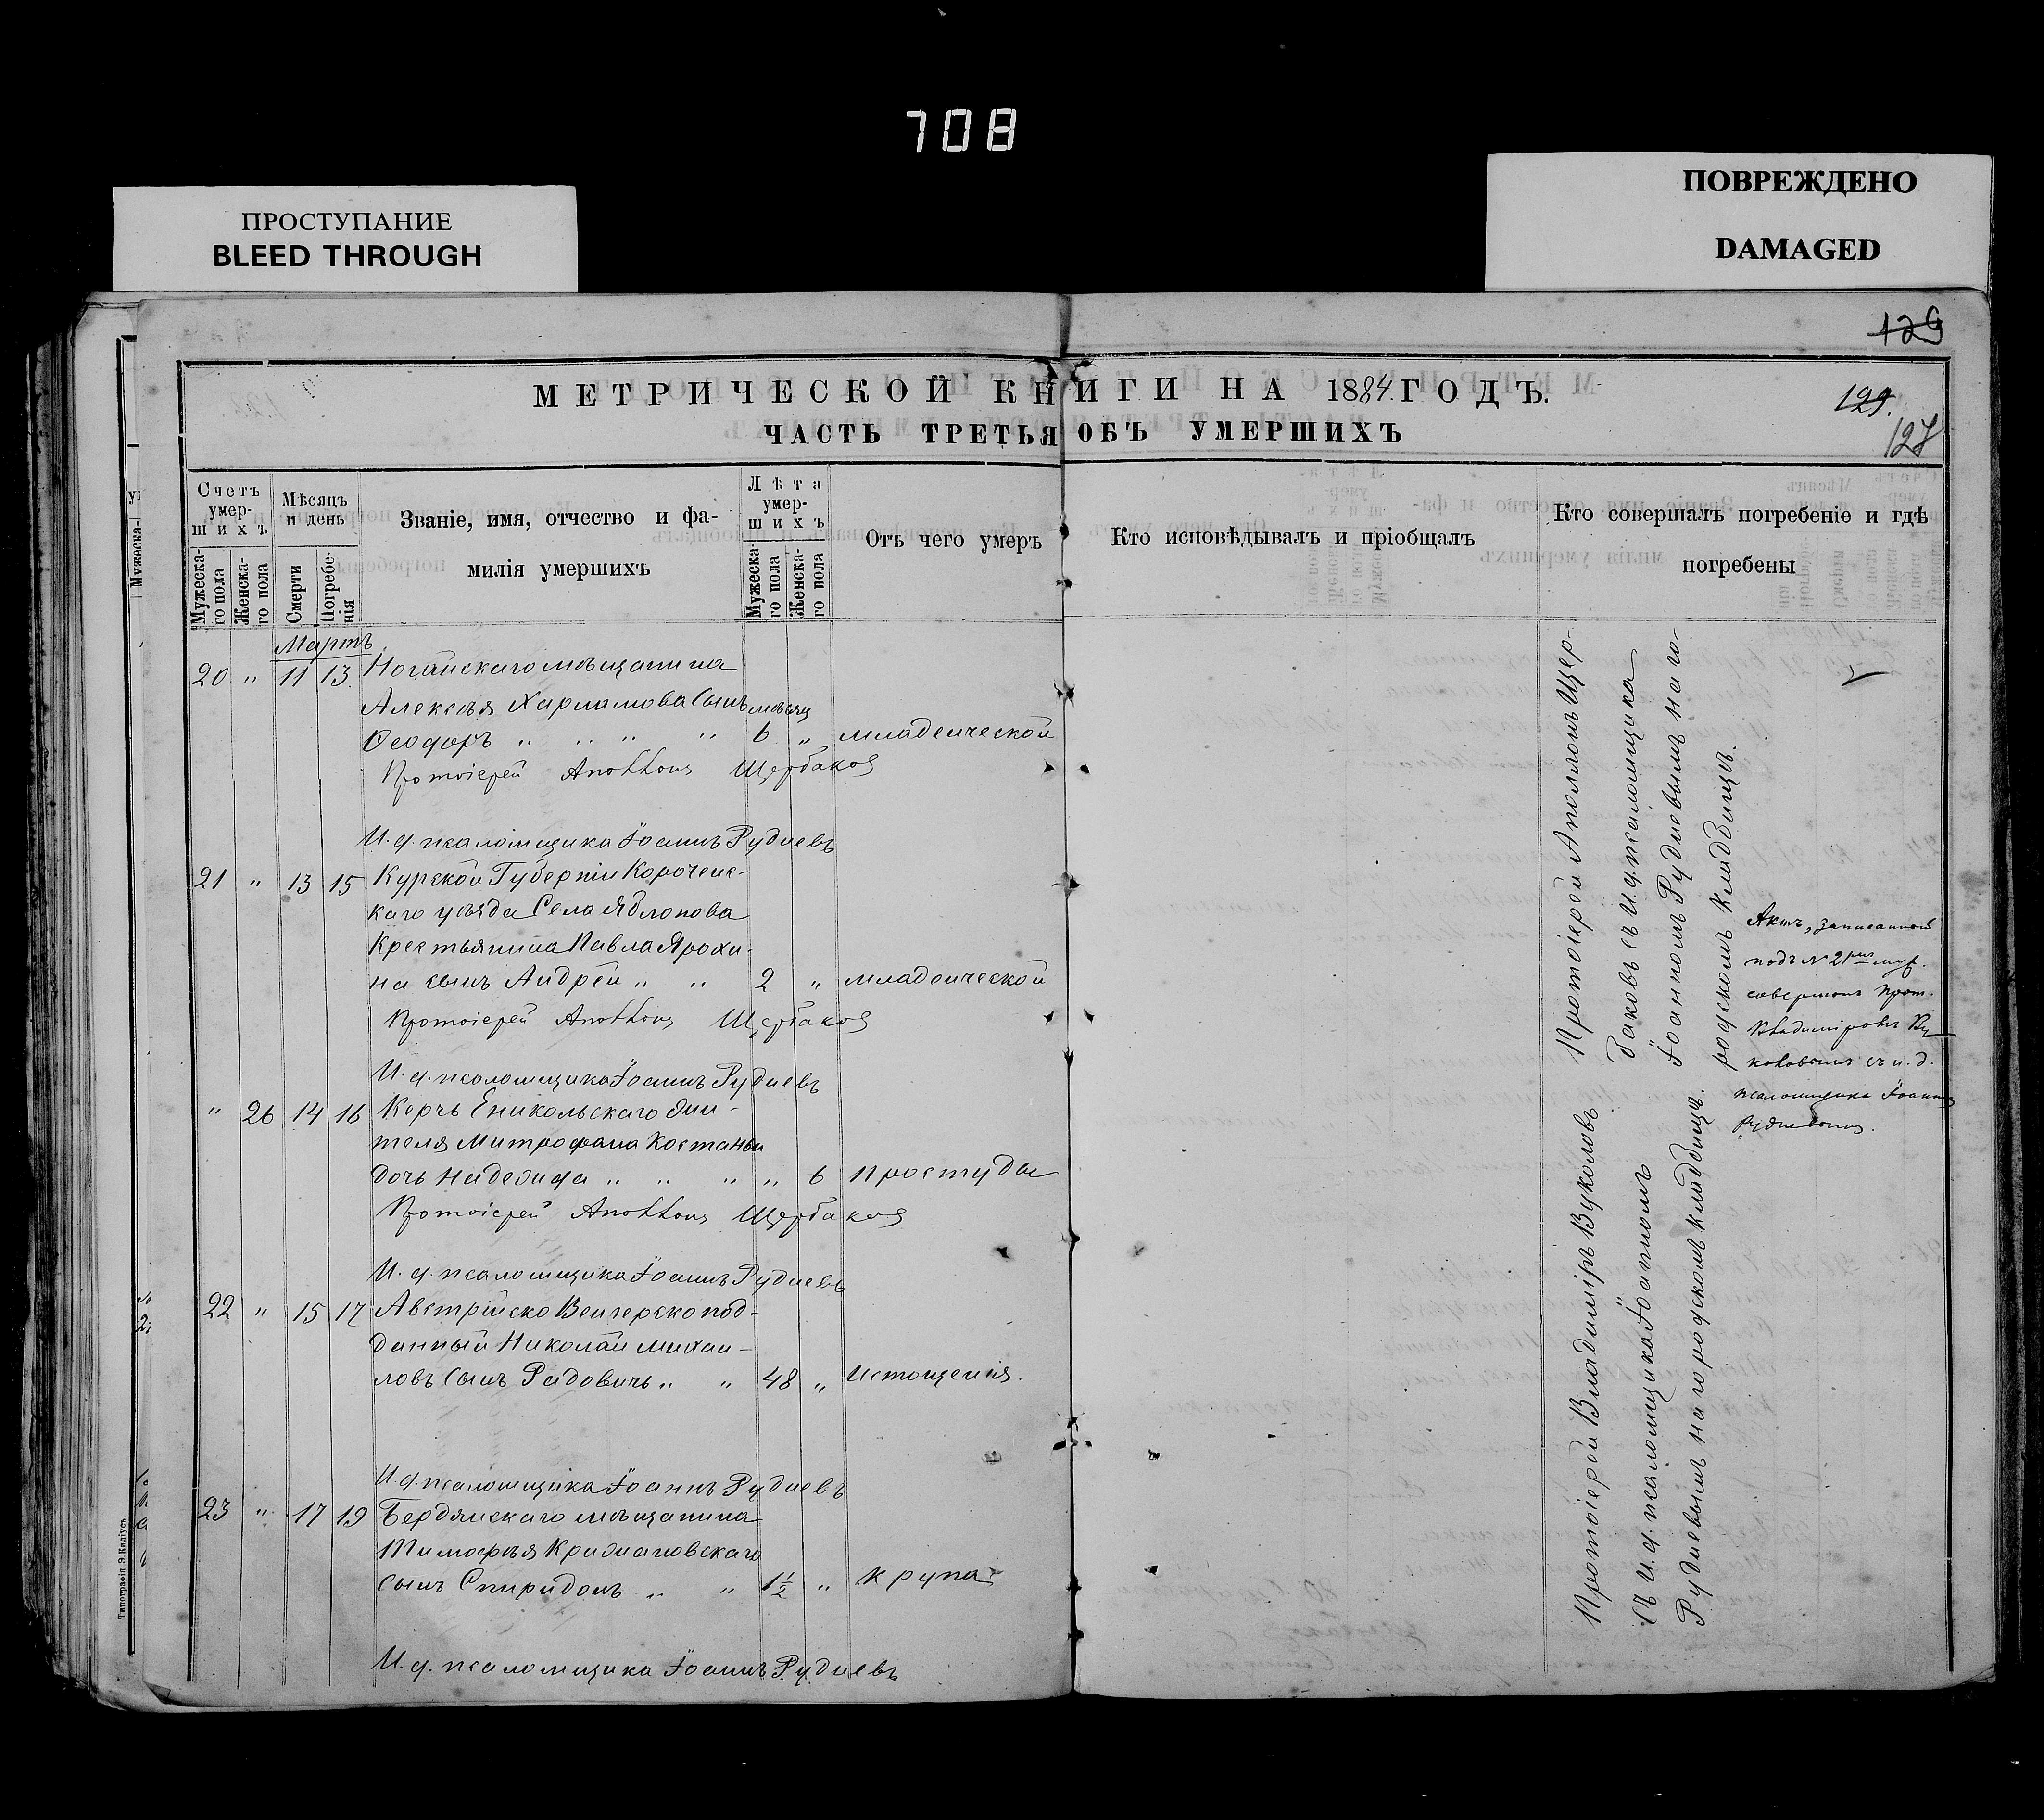 708
ПРОСТУПАНИЕ
BLEED THROUGH
ПОВРЕЖДЕНО
DAMAGED
129
МЕТРИЧЕСКОЙ КНИГИ НА 1884 ГОДЪ.
129.
ЧАСТЬ ТРЕТЬЯ ОБЪ УМЕРШИХЪ
128
Счетъ умер-шихъ
Мѣсяцъ и день
Званіе, имя, отчество и фа-
милія умершихъ
Лѣта умер-шихъ
Отъ чего умеръ
Кто исповѣдывалъ и пріобщалъ
Кто совершалъ погребеніе и гдѣ
погребены
Мужеска-го пола
Женска-го пола
Смерти
Погребе-нія
Мужеска-го пола
Женска-го пола
Мартъ
20 " 11 13 Ногайскаго мѣщанина
Алексѣя Харламова сынъ мѣсяц
Ѳеодоръ " " " " 6 " младенческой
Протоіерей Аполлонъ Щербаковъ
И. д. псаломщика Іоаннъ Рудневъ
21 " 13 15 Курской Губерніи Короченс-
каго уѣзда Села Яблонова
Крестьянина Павла Ярохи-
на сынъ Андрей " " 2 " младенческой
Протоіерей Аполлонъ Щербаковъ
И. д. псаломщика Іоаннъ Рудневъ
" 26 14 16 Керчь Еникольскаго жи-
теля Митрофана Костанды
дочь Надежда " " " " 6 простуды
Протоіерей Аполлонъ Щербаковъ
И. д. псаломщика Іоаннъ Рудневъ
22 " 15 17 Австрійско Венгерско под-
данный Николай Михаи-
ловъ сынъ Радовичь " " 48 " истощенія.
И. д. псаломщика Іоаннъ Рудневъ
23 " 17 19 Бердянскаго мѣщанина
Тимофѣя
сынъ Спиридонъ " " 1½ " крупа
И. д. псаломщика Іоаннъ Рудневъ
Протоіерей Аполлонъ Щер-
баковъ съ И. д. псаломщика
Іоанномъ Рудневымъ на го-
родскомъ кладбищѣ.
Актъ, записанный
подъ № 21 муж.
совершонъ Прот.
Владиміромъ Ву
коловымъ съ и. д.
псаломщика Іоанн
Рудневымъ.
Протоіерей Владиміръ Вуколовъ
съ И. д. псаломщика Іоанномъ
Рудневымъ на городскомъ кладбищѣ.
Типографія Э. Киліусъ